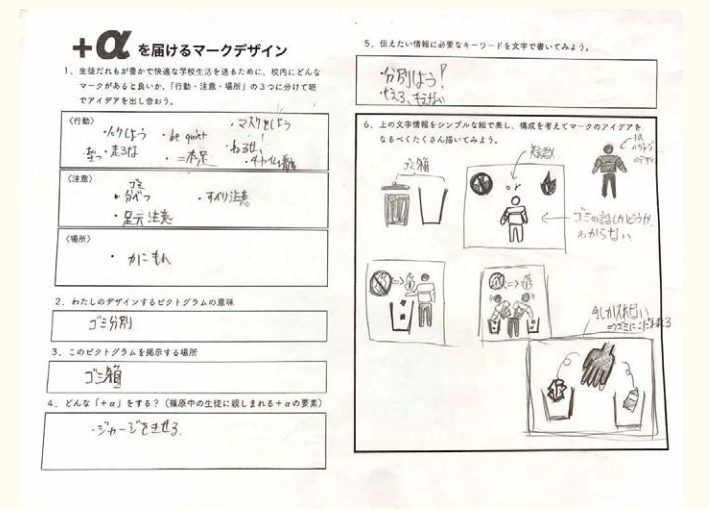 +α を届けるマークデザイン
1、生徒だれもが豊かで快適な学校生活を送るために、校内にどんな
マークがあると良いか、「行動・注意・場所」の3つに分けて班
でアイデアを出し合おう。
〈行動〉
・be quiet
・マスクをしよう
・走るな
〈注意〉
ゴミ
・分べつ
・すべり注意
・足元注意
〈場所〉
・かにもん
2、わたしのデザインするピクトグラムの意味
ゴミ分別
3、このピクトグラムを掲示する場所
ゴミ箱
4、どんな「+α」をする？（篠原中の生徒に親しまれる+αの要素）
・ジャージをきせる。
5、伝えたい情報に必要なキーワードを文字で書いてみよう。
・分別しよう！
・もえる、もえない
6、上の文字情報をシンプルな絵で表し、構成を考えてマークのアイデアを
なるべくたくさん描いてみよう。
ゴミ箱
or
ゴミの話しかどうか、
わからない